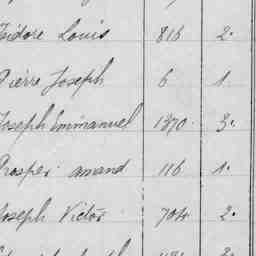 Isidore Louis 816 2.
Pierre Joseph 6 1.
Joseph Emmanuel 1370. 3.
Prosper Amand 116 1.
Joseph Victor 704 2.